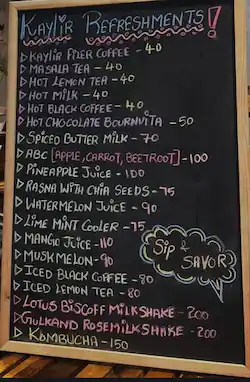 KAYLIR REFRESHMENTS!
KAYLIR FILER COFFEE - 40
MASALA TEA - 40
HOT LEMON TEA - 40
HOT MILK - 40
HOT BLACK COFFEE - 40
HOT CHOCOLATE BOURNVITA - 50
SPICED BUTTER MILK - 70
ABC [APPLE, CARROT, BEETROOT] - 100
PINEAPPLE JUICE - 100
RASNA WITH CHIA SEEDS - 75
WATERMELON JUICE - 90
LIME MINT COOLER - 75
MANGO JUICE - 110
MUSKMELON - 90
SIP &
SAVOR
ICED BLACK COFFEE - 80
ICED LEMON TEA - 80
LOTUS BISCOFF MILKSHAKE - 200
GULKAND ROSEMILKSHAKE - 200
KOMBUCHA - 150